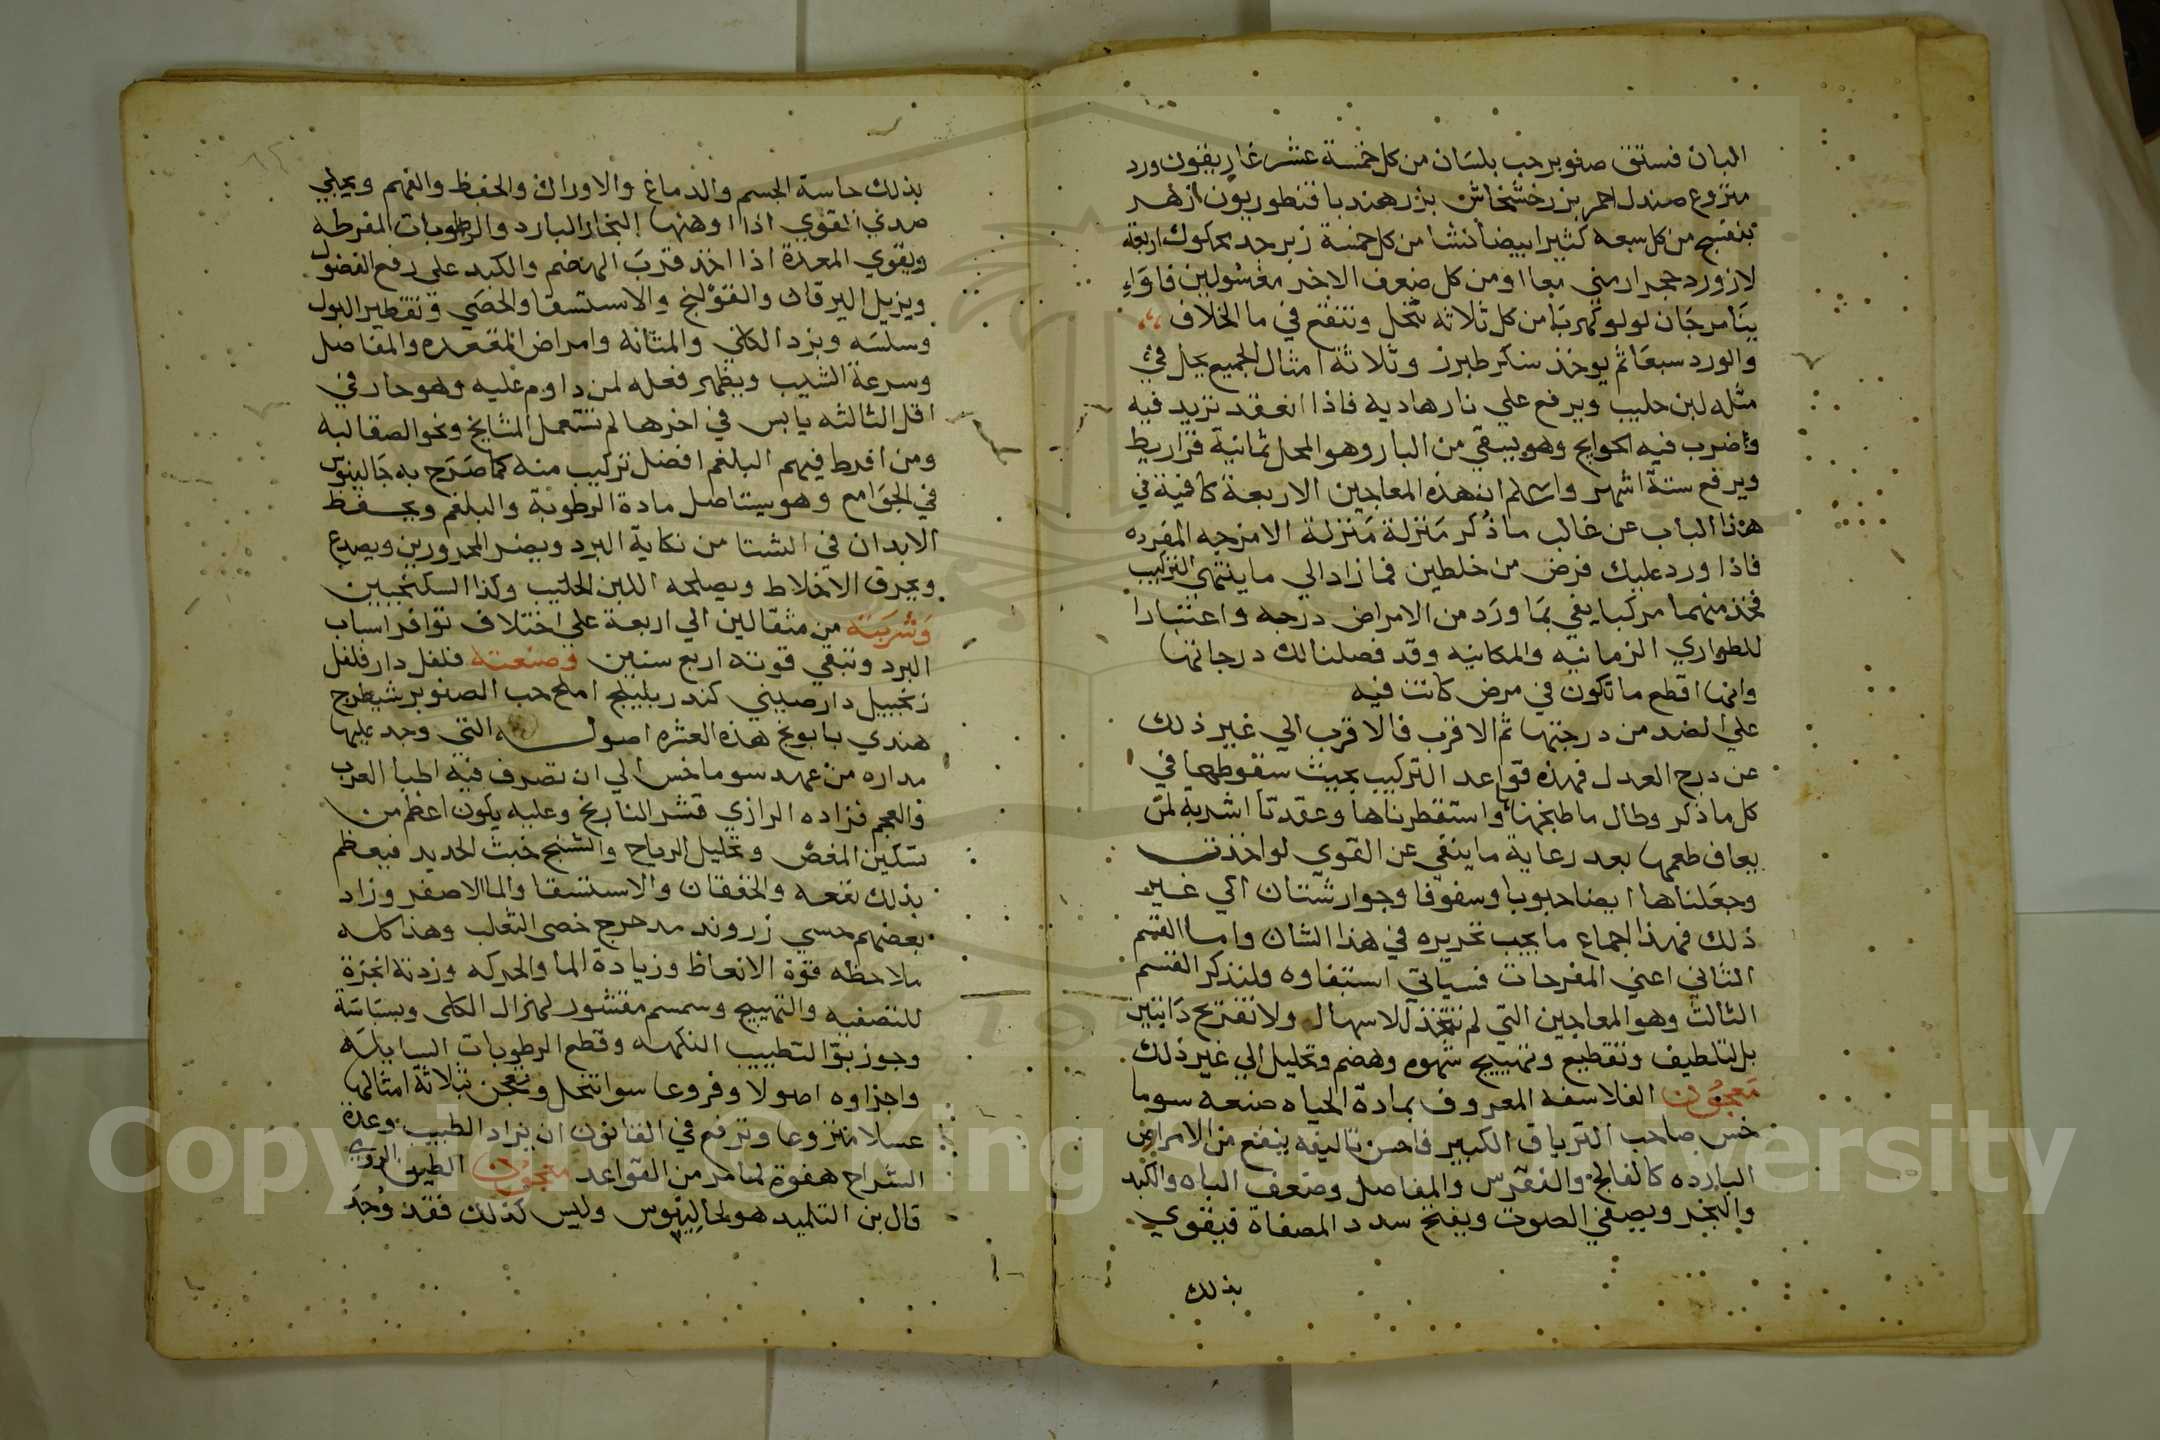 البان فستق صنوبر حب بلسان من كل خمسة عشر غاريقون ورد
منزوع صندل احمر بزر خشخاش بزر هندبا قنطوريون ازهر
بنفسج من كل سبعه كثيرا بيضا نشا من كل خمسة زبرجد محكوك اربعة
لازورد حجر ارمني معا او من كل ضعف الاخر مغسولين فاواء
بينا مرجان لولو كهربا من كل ثلاثه تنخل وتنقع في ما الخلاف
والورد سبعا ثم يوخذ سكر طبرزد وثلاثة امثال الجميع يحل في
مثله لبن حليب ويرفع علي نار هادية فاذا انعقد نزيد فيه
واضرب فيه الحوايج وهو يبقي من البار وهو المحل ثمانية قراريط
ويرفع ستة اشهر واعلم ان هذه المعاجين الاربعة كافية في
هذا الباب عن غالب ما ذكر منزلة منزلة الامزجه المفرده
فاذا ورد عليك فرض من خلطين فما زاد الي ما ينتهي التركيب
فخذ منهما مركبا يفي بما ورد من الامراض درجه واعتبارا
للطواري الزمانيه والمكانيه وقد فصلنا لك درجاتها
وانها اقطع ما تكون في مرض كانت فيه
علي الضد من درجتها ثم الاقرب فالاقرب الي غير ذلك
عن درج العدل فهذه قواعد التركيب بحيث سقوطها في
كل ما ذكر وطال ما طبخناها واستقطرناها وعقدنا اشربة لمن
يعاف طعمها بعد رعاية ما ينقي عن القوي لو اخذت
وجعلناها ايضا حبوبا وسفوفا وجوارشتان الي غير
ذلك فهذا جماع ما يجب تحريره في هذا الشان واما القسم
الثاني اعني المفرحات فسياتي استيفاوه ولنذكر القسم
الثالث وهو المعاجين التي لم تتخذ للاسهال ولا تفتريح دانتين
بل لتلطيف وتقطيع وتهييج شهوه وهضم وتحليل الي غير ذلك
معجون الفلاسفه المعروف بمادة الحياه صنعه سوما
خس صاحب الترياق الكبير فاحسن تاليفه ينفع من الامراض
البارده كالفالج والنقرس والمفاصل وضعف الباه والكبد
والبخر ويصفي الصوت ويفتح سدد المصفاة فيقوي
بذلك
بذلك حاسة الجسم والدماغ والاوراك والحفظ والفهم ويجلي
صدي القوي اذا اوهنها البخار البارد والرطوبات المفرطه
ويقوي المعدة اذا اخذ قرب الهضم والكبد علي رفع الفضول
ويزيل اليرقان والقولنج والاستسقا والحصي وتقطير البول
وسلسه وبرد الكلي والمثانه وامراض المقعده والمفاصل
وسرعة الشيب ويظهر فعله لمن داوم عليه وهو حار في
اقل الثالثه يابس في اخرها لم تستعمل المشايخ ونحو الصقالبه
ومن افرط فيهم البلغم افضل تركيب منه كما صرح به جالينوس
في الجوامع وهو يستاصل مادة الرطوبة والبلغم ويحفظ
الابدان في الشتا من نكاية البرد ويضر المحرورين ويصدع
ويحرق الاخلاط ويصلحه اللبن الحليب وكذا السكنجبين
وشربته من مثقالين الي اربعة علي اختلاف توافر اسباب
البرد وتبقي قوته اربع سنين وصنعته فلفل دار فلفل
زنجبيل دارصيني كندر بليلج املج حب الصنوبر شيطرج
هندي بابونج هذه العشره اصوله التي وجد عليها
مداره من عهد سوماخس الي ان تصرف فيه اطبا العرب
والعجم فزاده الرازي قشر النارنج وعليه يكون اعظم من
تسكين المغص وتحليل الرياح والتشنج خبث الحديد فيعظم
بذلك نفعه والخفقان والاستسقا والما الاصفر وزاد
بعضهم حسي زروند مدحرج خصي الثعلب وهذا كله
ملاحظه قوة الانعاظ وزيادة الما والحركه وزدته انجزة
للتصفيه والتهييج وسمسم مقشور لهزال الكلي وبسباسة
وجوزبوّا لتطييب النكهه وقطع الرطوبات السايله
واجزاوه اصولا وفروعا سوا تنخل وتعجن بثلاثة امثالها
عسلا منزوعا وترفع في القانون ان يزاد الطبيب وعدة
الشراح هفوة لما مر من القواعد معجون الطين الرومي
قال بن التلميد هو لجالينوس وليس كذلك فقد وجد
Copyright © King Saud University